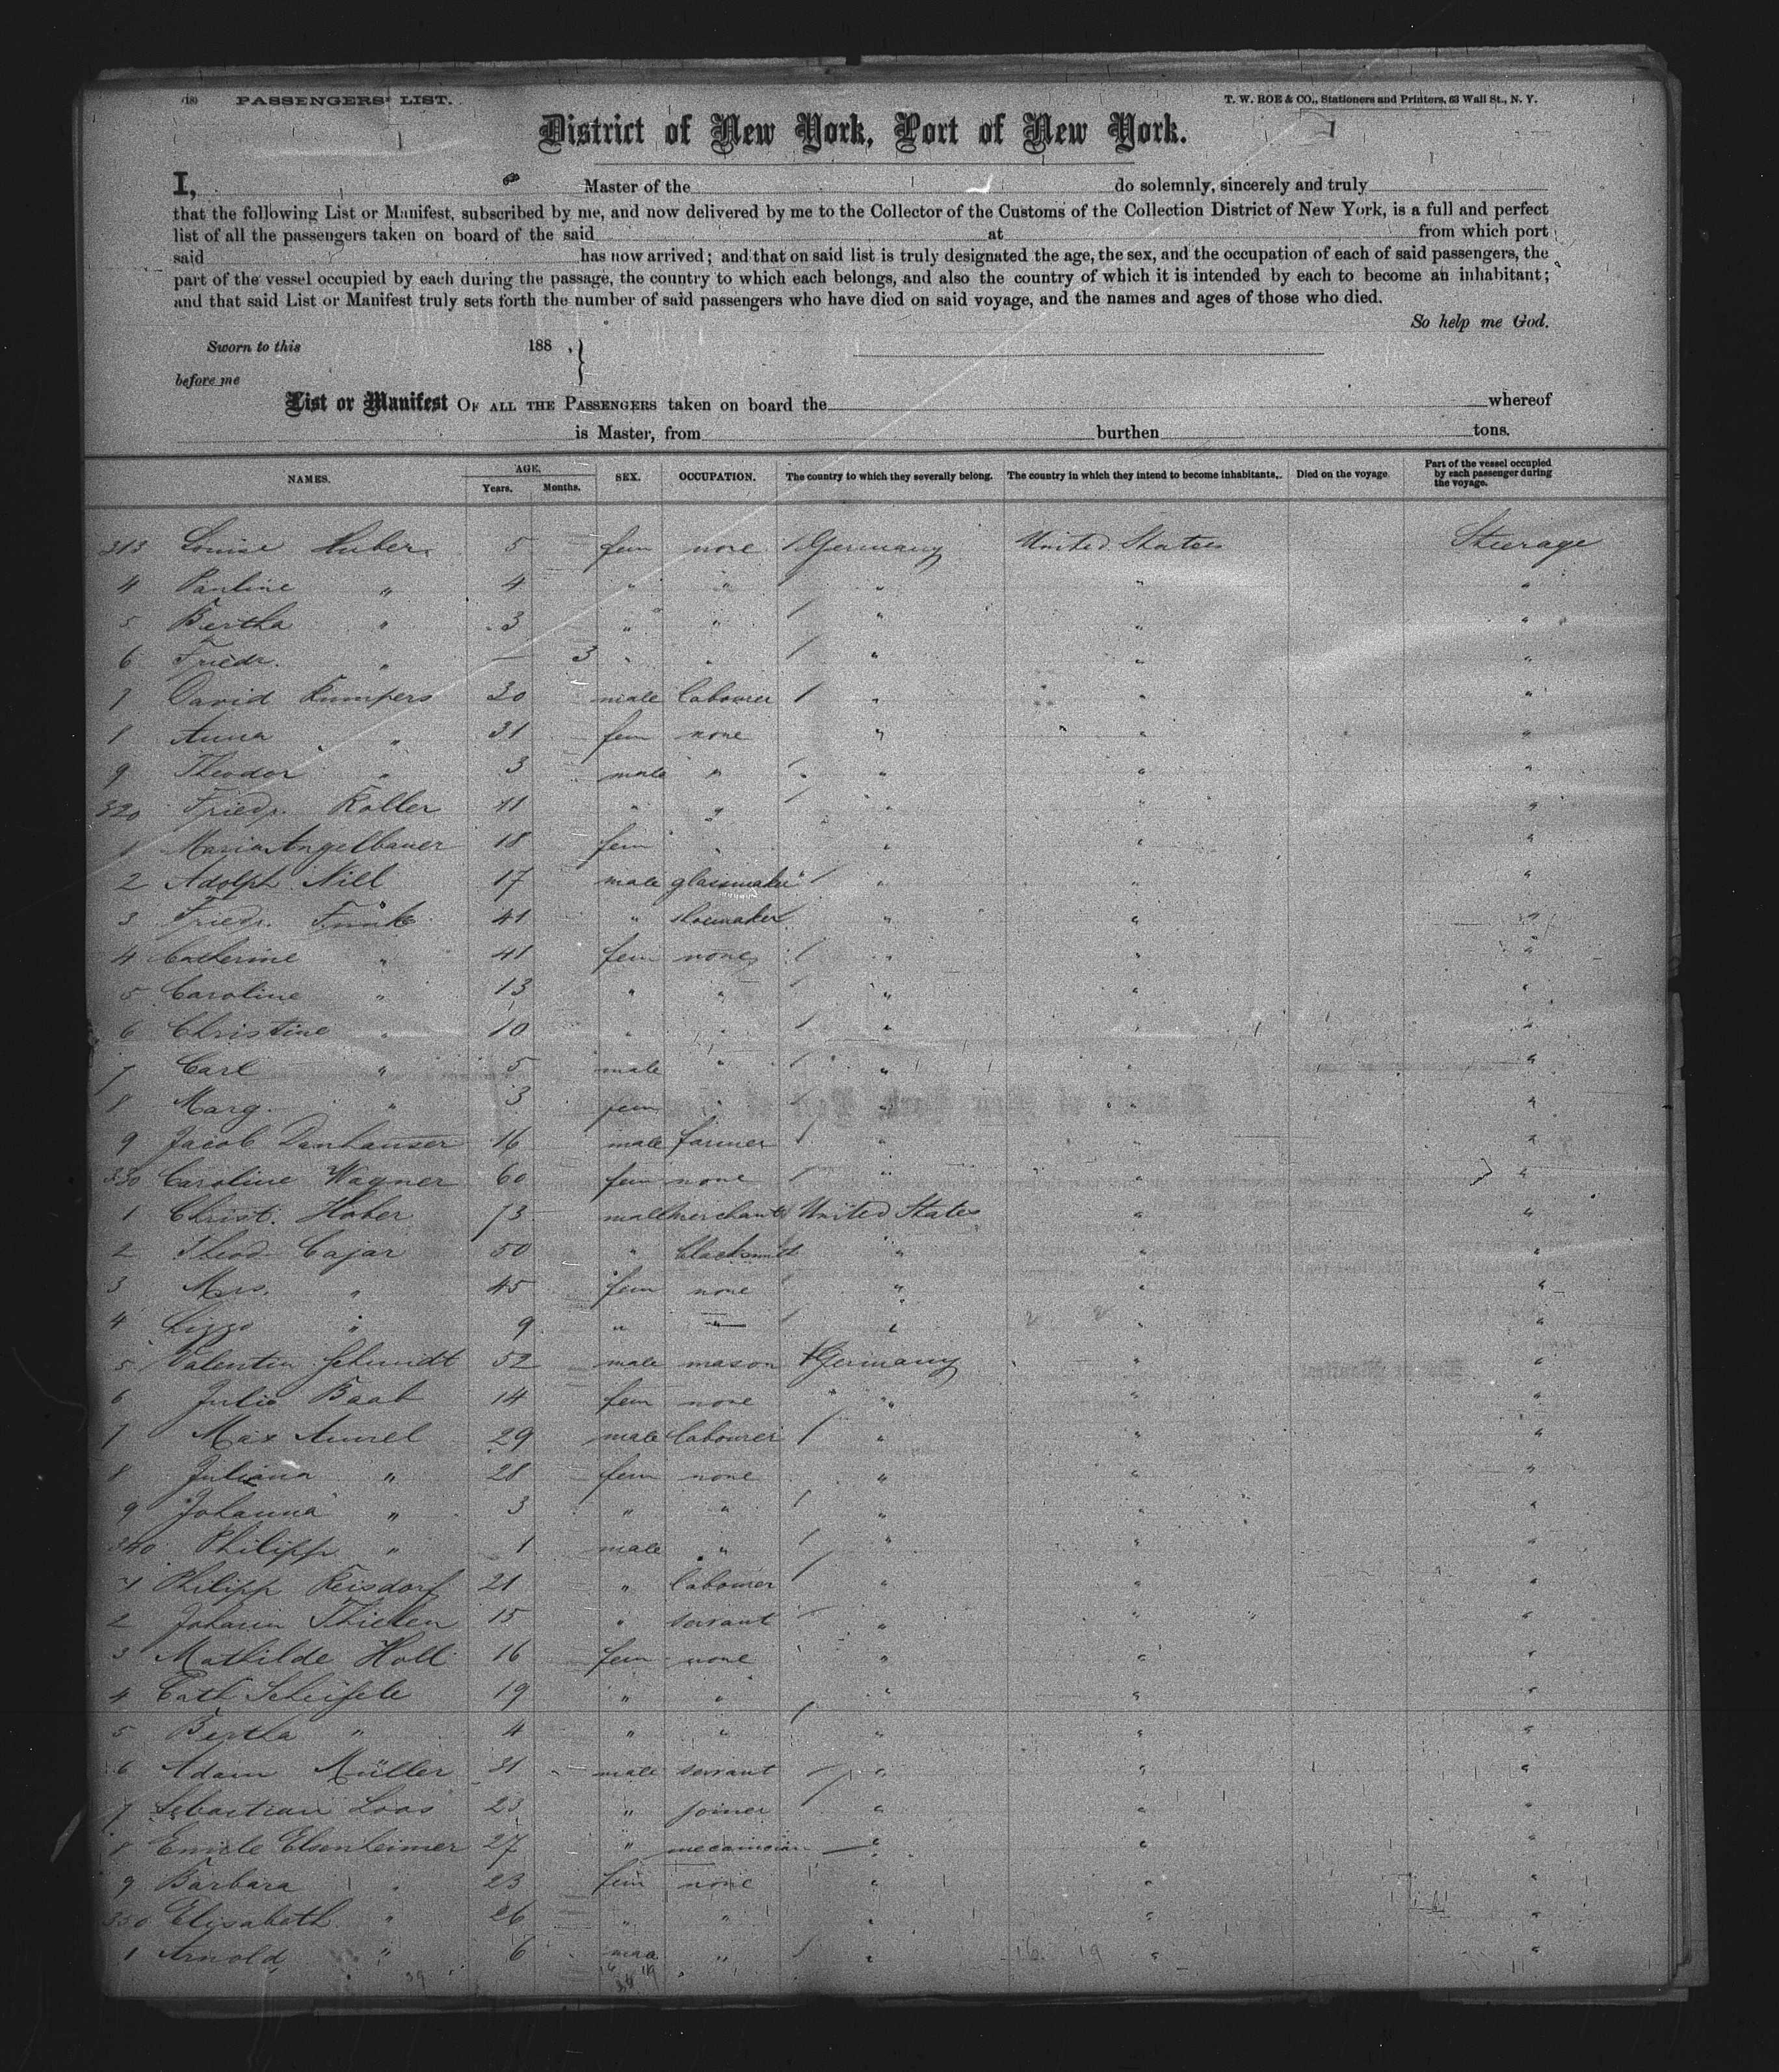 (18) PASSENGERS' LIST. T. W. ROE & CO., Stationers and Printers, 63 Wall St., N. Y.
District of New York, Port of New York.
I, Master of the do solemnly, sincerely and truly
that the following List or Manifest, subscribed by me, and now delivered by me to the Collector of the Customs of the Collection District of New York, is a full and perfect
list of all the passengers taken on board of the said at from which port
said has now arrived; and that on said list is truly designated the age, the sex, and the occupation of each of said passengers, the
part of the vessel occupied by each during the passage, the country to which each belongs, and also the country of which it is intended by each to become an inhabitant;
and that said List or Manifest truly sets forth the number of said passengers who have died on said voyage, and the names and ages of those who died.
So help me God.
Sworn to this 188 ,
before me
List or Manifest OF ALL THE PASSENGERS taken on board the whereof
is Master, from burthen tons.
NAMES. AGE. Years. Months. SEX. OCCUPATION. The country to which they severally belong. The country in which they intend to become inhabitants. Died on the voyage. Part of the vessel occupied by each passenger during the voyage.
313 Louise Huber 5 fem none Germany United States Steerage
4 Pauline " 4 " " " " "
5 Bertha " 3 " " " " "
6 Friedr. " — 3 " " " " "
7 David Kumpers 30 male labourer " " "
8 Anna " 31 fem none " " "
9 Theodor " 3 male " " " "
320 Friedr. Koller 11 " " " " "
1 Maria Angelbauer 18 fem " " " "
2 Adolph Nill 17 male glassmaker " " "
3 Friedr. Funk 41 " shoemaker " " "
4 Catherine " 41 fem none " " "
5 Caroline " 13 " " " " "
6 Christine " 10 " " " " "
7 Carl " 5 male " " " "
8 Marg. " 3 fem " " " "
9 Jacob Danhauser 16 male farmer " " "
330 Caroline Wagner 60 fem none " " "
1 Christ. Hober 73 male merchant United States " "
2 Theod Cajar 50 " blacksmith " " "
3 Mrs. " 45 fem none " " "
4 " 9 " " " " "
5 Valentin Schmidt 52 male mason Germany " "
6 Julie Baab 14 fem none " " "
7 Max 29 male labourer " " "
8 Juliana " 28 fem none " " "
9 Johanna " 3 " " " " "
340 Philipp " 1 male " " " "
1 Philipp Reisdorf 21 " labourer " " "
2 Johann Thielen 15 " servant " " "
3 Mathilde Holl 16 fem none " " "
4 Cath Scheifele 19 " " " " "
5 Bertha " 4 " " " " "
6 Adam Müller 31 male servant " " "
7 Sebastian Loos 23 " joiner " " "
8 Emile Elsenheimer 27 " mecanician " " "
9 Barbara " 23 fem none " " "
350 Elisabeth " 26 " " " " "
1 Arnold " 6 " " " "